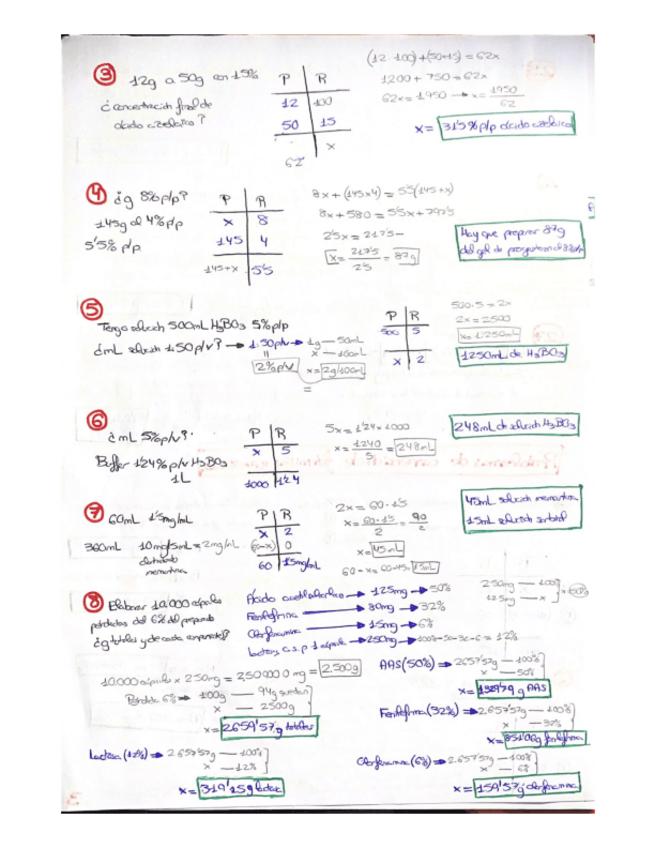 ③ 12g a 50g con 15%
¿concentración final de
ácido azelaico?
P R
12 100
50 15
62 x
(12·100)+(50·15) = 62x
1200 + 750 = 62x
62x = 1950 → x = 1950/62
x = 31'5% p/p ácido azelaico
④ ¿g 8% p/p?
145g al 4% p/p
5'5% p/p
P R
x 8
145 4
145+x 5'5
8x + (145x4) = 5'5(145+x)
8x + 580 = 5'5x + 797'5
2'5x = 217'5
x = 217'5/2'5 = 87g
Hay que preparar 87g
⑤
Tengo solución 500mL H₃BO₃ 5% p/p
¿mL solución 1:50 p/v? → 1:50 p/v → 1g — 50mL
x — 100mL
2% p/v x = 2g/100mL
=
P R
500 5
x 2
500·5 = 2x
2x = 2500
x = 1250mL
1250mL de H₃BO₃
⑥
¿mL 5% p/v?
Buffer 1'24% p/v H₃BO₃
1L
P R
x 5
1000 1'24
5x = 1'24x1000
x = 1240/5 = 248mL
248mL de solución H₃BO₃
⑦ 60mL 1'5mg/mL
360mL 10mg/5mL = 2mg/mL
memantina
P R
x 2
(60-x) 0
60 1'5mg/mL
2x = 60·1'5
x = 60·1'5/2 = 90/2
x = 45mL
60-x = 60-45 = 15mL
45mL solución memantina
15mL solución sorbitol
⑧ Elaborar 10.000 cápsulas
pérdidas del 6% del preparado
¿g totales y de cada componente?
Ácido acetilsalicílico → 125mg → 50%
Fenilefrina → 80mg → 32%
Clorfenamina → 15mg → 6%
Lactosa c.s.p 1 cápsula → 250mg → 100-50-32-6 = 12%
250mg — 100
125mg — x
x = 50%
10.000 cápsulas x 250mg = 2500000 mg = 2.500g
Pérdida 6% → 100g — 94g quedan
x — 2500g
x = 2659'57g totales
AAS (50%) → 2659'57g — 100%
x — 50%
x = 1329'79 g AAS
Fenilefrina (32%) → 2659'57g — 100%
x — 32%
x = 851'06g fenilefrina
Lactosa (12%) → 2659'57g — 100%
x — 12%
x = 319'15g lactosa
Clorfenamina (6%) → 2659'57g — 100%
x — 6%
x = 159'57g clorfenamina